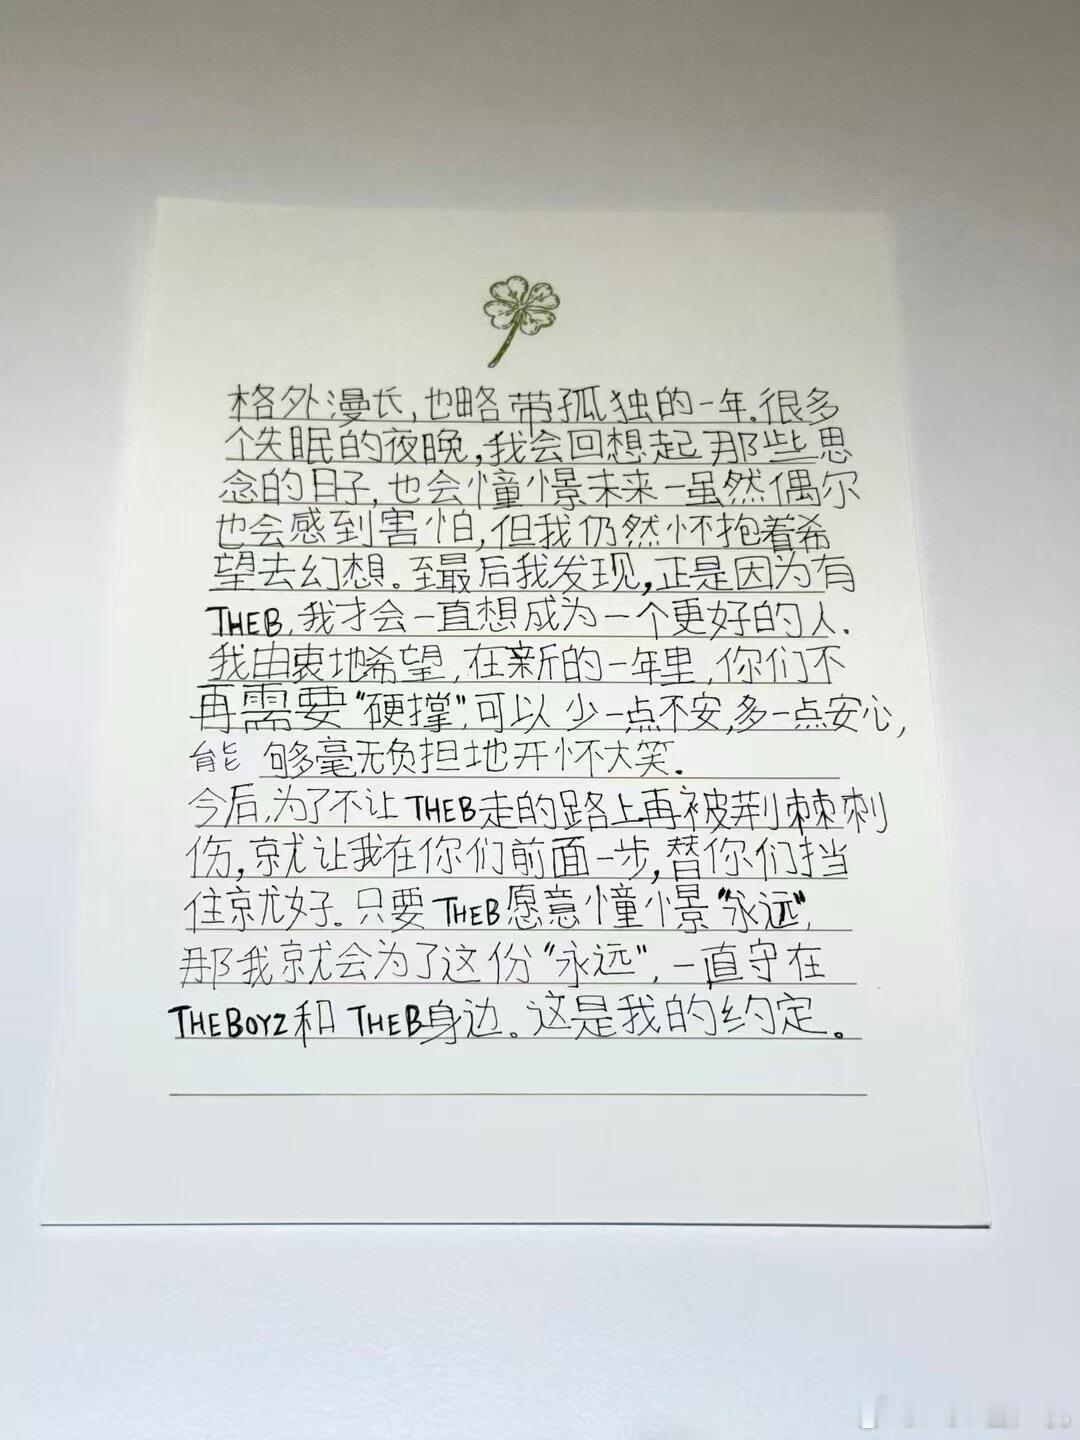 格外漫长,也略带孤独的一年.很多
个失眠的夜晚,我会回想起那些思
念的日子,也会憧憬未来—虽然偶尔
也会感到害怕,但我仍然怀抱着希
望去幻想.至最后我发现,正是因为有
THEB,我才会一直想成为一个更好的人.
我由衷地希望,在新的一年里,你们不
再需要"硬撑",可以少一点不安,多一点安心,
能够毫无负担地开怀大笑.
今后,为了不让THEB走的路上再被荆棘刺
伤,就让我在你们前面一步,替你们挡
住就好.只要THEB愿意憧憬"永远",
那我就会为了这份"永远",一直守在
THEBOYZ和THEB身边。这是我的约定。